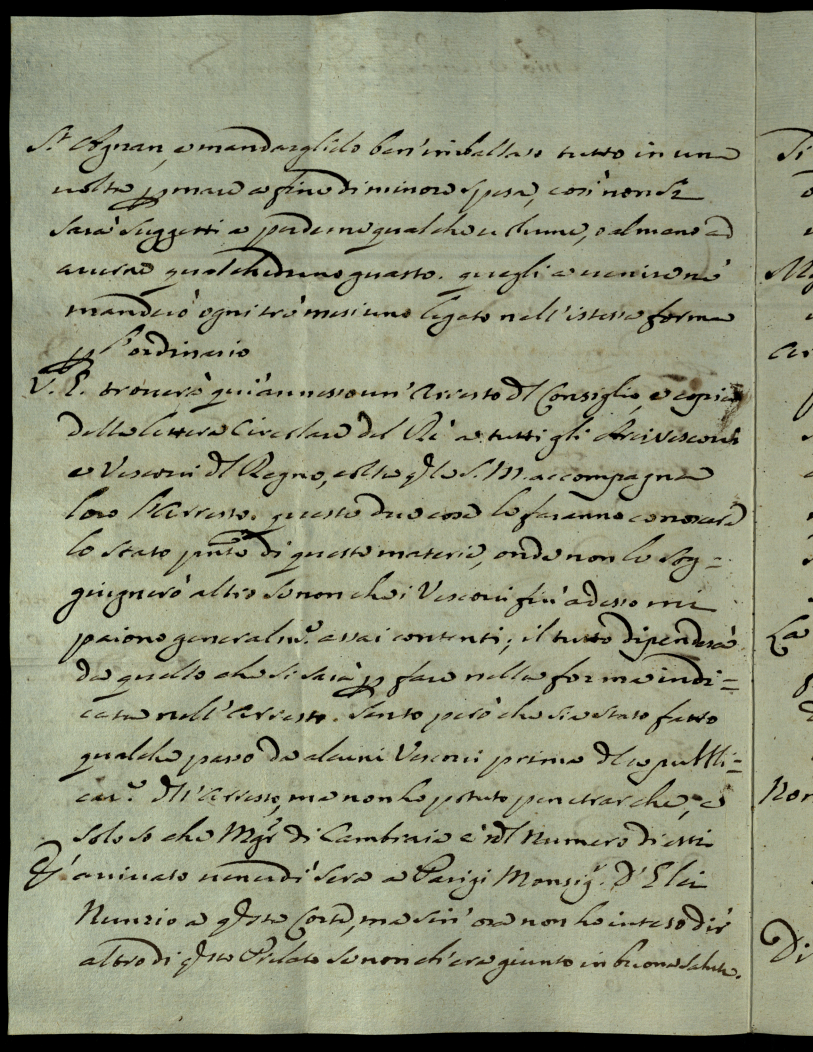 S.t Agnan, e mandarglielo ben'imballato tutto in una
volta p mare a fine di minore spesa, così non si
sarà suggetti a perderne qualche volume, o almeno ad
averne qualcheduno guasto. quegli a venire ne
manderò ogni trè mesi uno legato nell'istessa forma
p l'ordinario
V. E. troverà quì annesso un'Arresto dl Consiglio, e copia
della lettera Circolare del Rè a tutti gli Arcivescovi
e Vescovi dl Regno, colla qle S. M. accompagna
loro l'Arresto. queste due cose le faranno conoscere
lo stato pnte di queste materie, onde non le sog=
giugnerò altro se non che i Vescovi fin'adesso mi
paiono generalm.e assai contenti; il tutto dipenderà
da quello che si sarà p fare nella forma indi=
cata nell'Arresto. Sento però che sia stato fatto
qualche passo da alcuni Vescovi prima dla pubbli=
caz.e dll'Arresto, ma non ho potuto penetrar che, e
solo so che Mgr di Cambraia è nl numero di essi
E' arrivato venerdì sera a Parigi Monsig.r D'Elci
Nunzio a qsta Corte, ma sin'ora non ho inteso dir
altro di qsto Prelato se non ch'era giunto in buona salute.